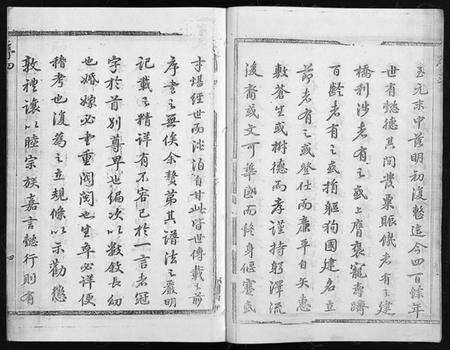 至元末中落明初復盛迄今四百餘年
世有懿德其間豊粟賑饑者有之建
橋利涉者有之或上膺褒寵壽躋
百齡者有之或捐軀狥國建名立
節者有之或登仕而廉平自矢惠
數蒼生或樹德而孝謹持躬澤流
後裔或文可華國而終身偃蹇或
才堪經世而淡泊自甘此皆世傳載之前
序者之無俟余贅第其譜法之嚴明
記載之精詳有不容已於一言者冠
字於首別尊卑也編次以數敘長幼
也婚嫁必書重閥閱也生卒必詳便
稽考也復為之立規條以示勸懲
敦禮讓以睦宗族嘉言懿行則有
序四
四